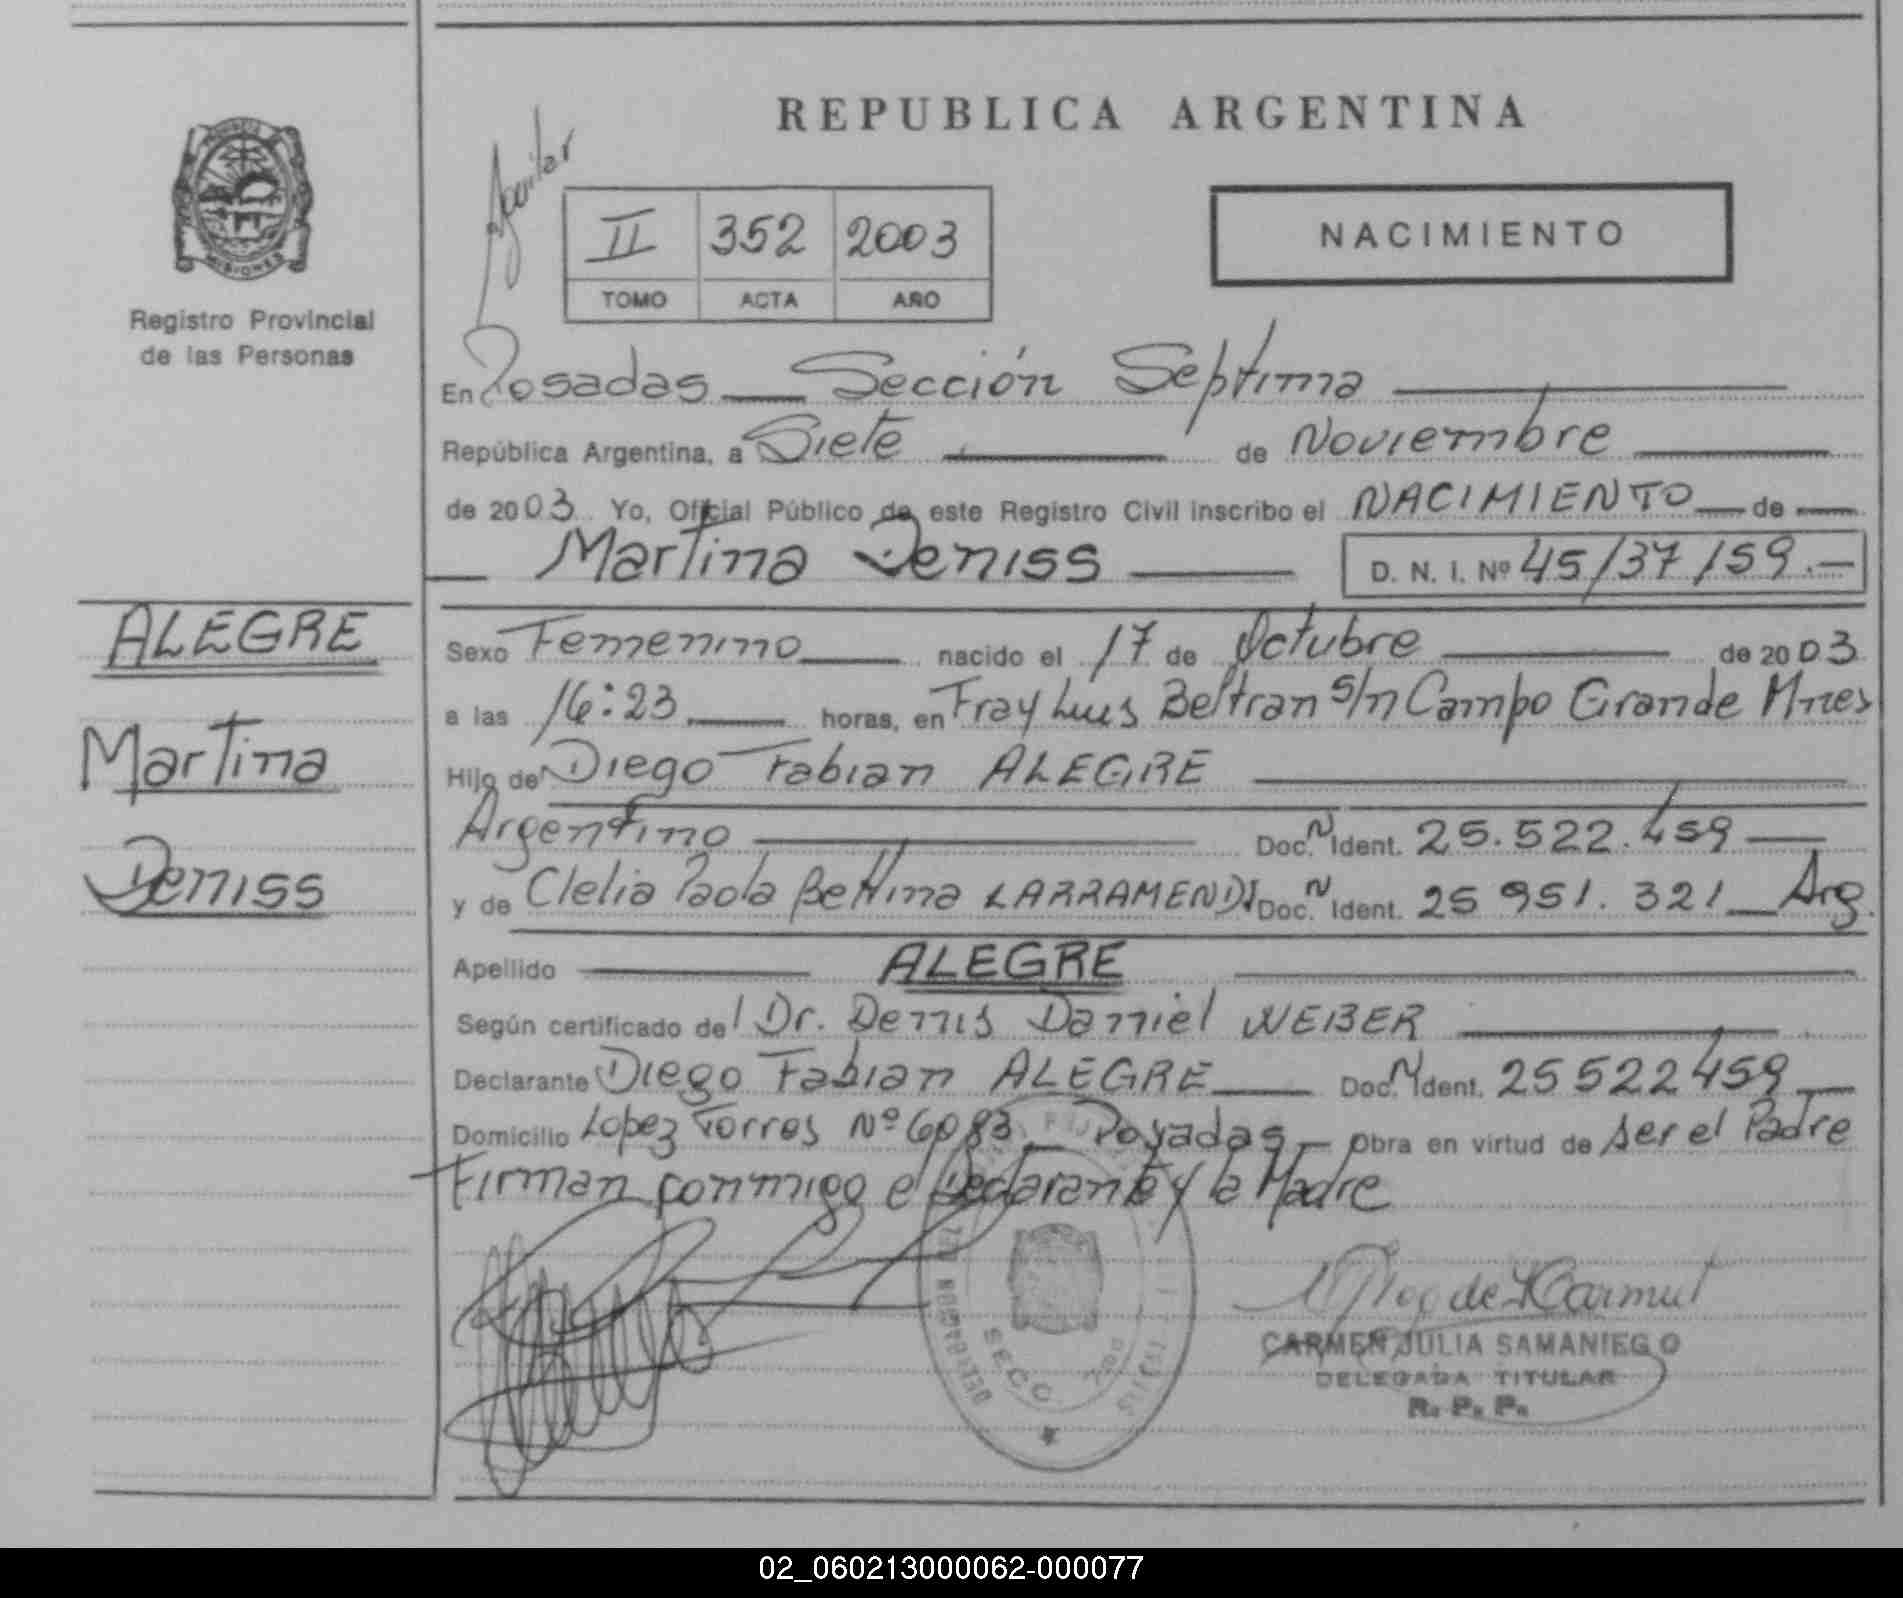 REPUBLICA ARGENTINA
MISIONES
Registro Provincial
de las Personas
Aguilar
II 352 2003
TOMO ACTA AÑO
NACIMIENTO
En Posadas Sección Septima
República Argentina, a Siete de Noviembre
de 2003 Yo, Oficial Público de este Registro Civil inscribo el NACIMIENTO de
Martina Deniss D. N. I. Nº 45/137/159.-
ALEGRE
Martina
Deniss
Sexo Femenino nacido el 17 de Octubre de 2003
a las 16:23 horas, en Fray Luis Beltran s/n Campo Grande Mnes
Hijo de Diego Fabian ALEGRE
Argentino Doc. N Ident. 25.522.459
y de Clelia Paola Bettina LARRAMENDI Doc. N Ident. 25 951. 321 Arg.
Apellido ALEGRE
Según certificado del Dr. Dennis Daniel WEBER
Declarante Diego Fabian ALEGRE Doc. N Ident. 25 522 459
Domicilio Lopez Torres Nº 6083 Posadas Obra en virtud de ser el Padre
Firman conmigo el Declarante y la Madre
SECC. 7
CARMEN JULIA SAMANIEGO
DELEGADA TITULAR
R. P. P.
02_060213000062-000077